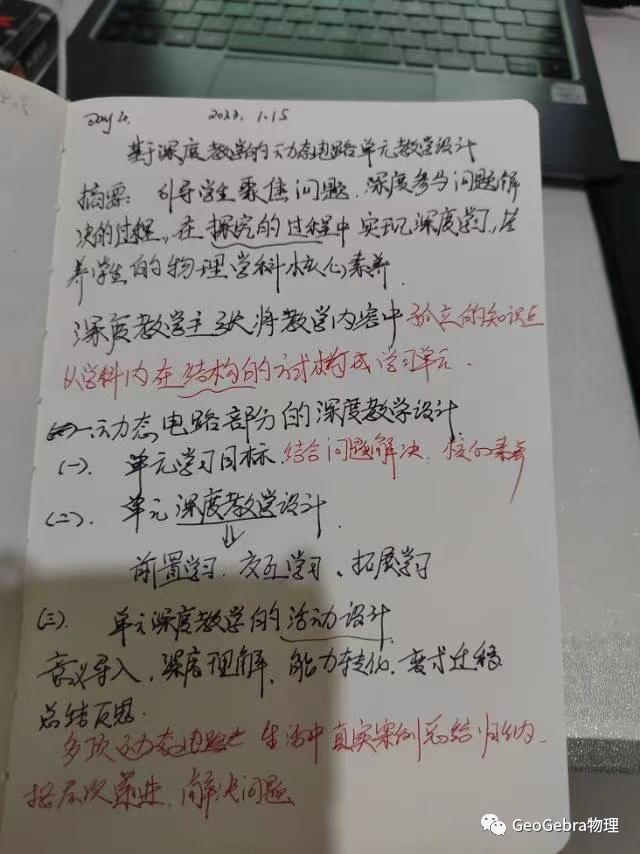 Day 4. 2022. 1.15
基于深度教学的动态电路单元教学设计
摘要: 引导学生聚焦问题. 深度参与问题解
决的过程, 在探究的过程中实现深度学习, 培
养学生的物理学科核心素养.
深度教学主张将教学内容中孤立的知识点
从学科内在结构的方式构成学习单元.
一、动态电路部分的深度教学设计
(一). 单元学习目标. 结合问题解决. 核心素养
(二). 单元深度教学设计.
前置学习. 交互学习、拓展学习
(三). 单元深度教学的活动设计
意义导入. 深度理解. 能力转化. 变式迁移
总结反思.
动态电路 生活中真实案例总结归纳.
按层次递进. 解决问题
GeoGebra物理